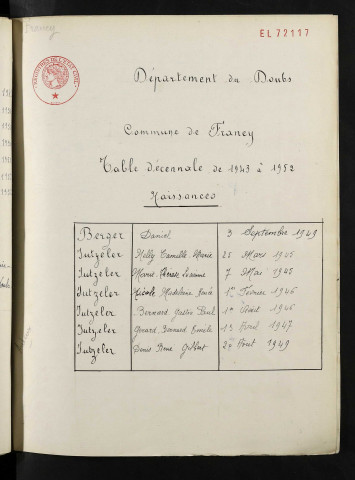 EL 72117
Département du Doubs
Commune de Franey
Table décennale de 1943 à 1952
Naissances
Berger Daniel 3 Septembre 1949
Jutzeler Nelly Camille Marie 25 Mars 1945
Jutzeler Marie Thérèse Jeanne 7 Mai 1945
Jutzeler Nicole Madeleine 1er Février 1946
Jutzeler Bernard Gustave Paul 1er Août 1946
Jutzeler Gérard Bernard 13 Avril 1947
Jutzeler Denis René Gilbert Août 1949